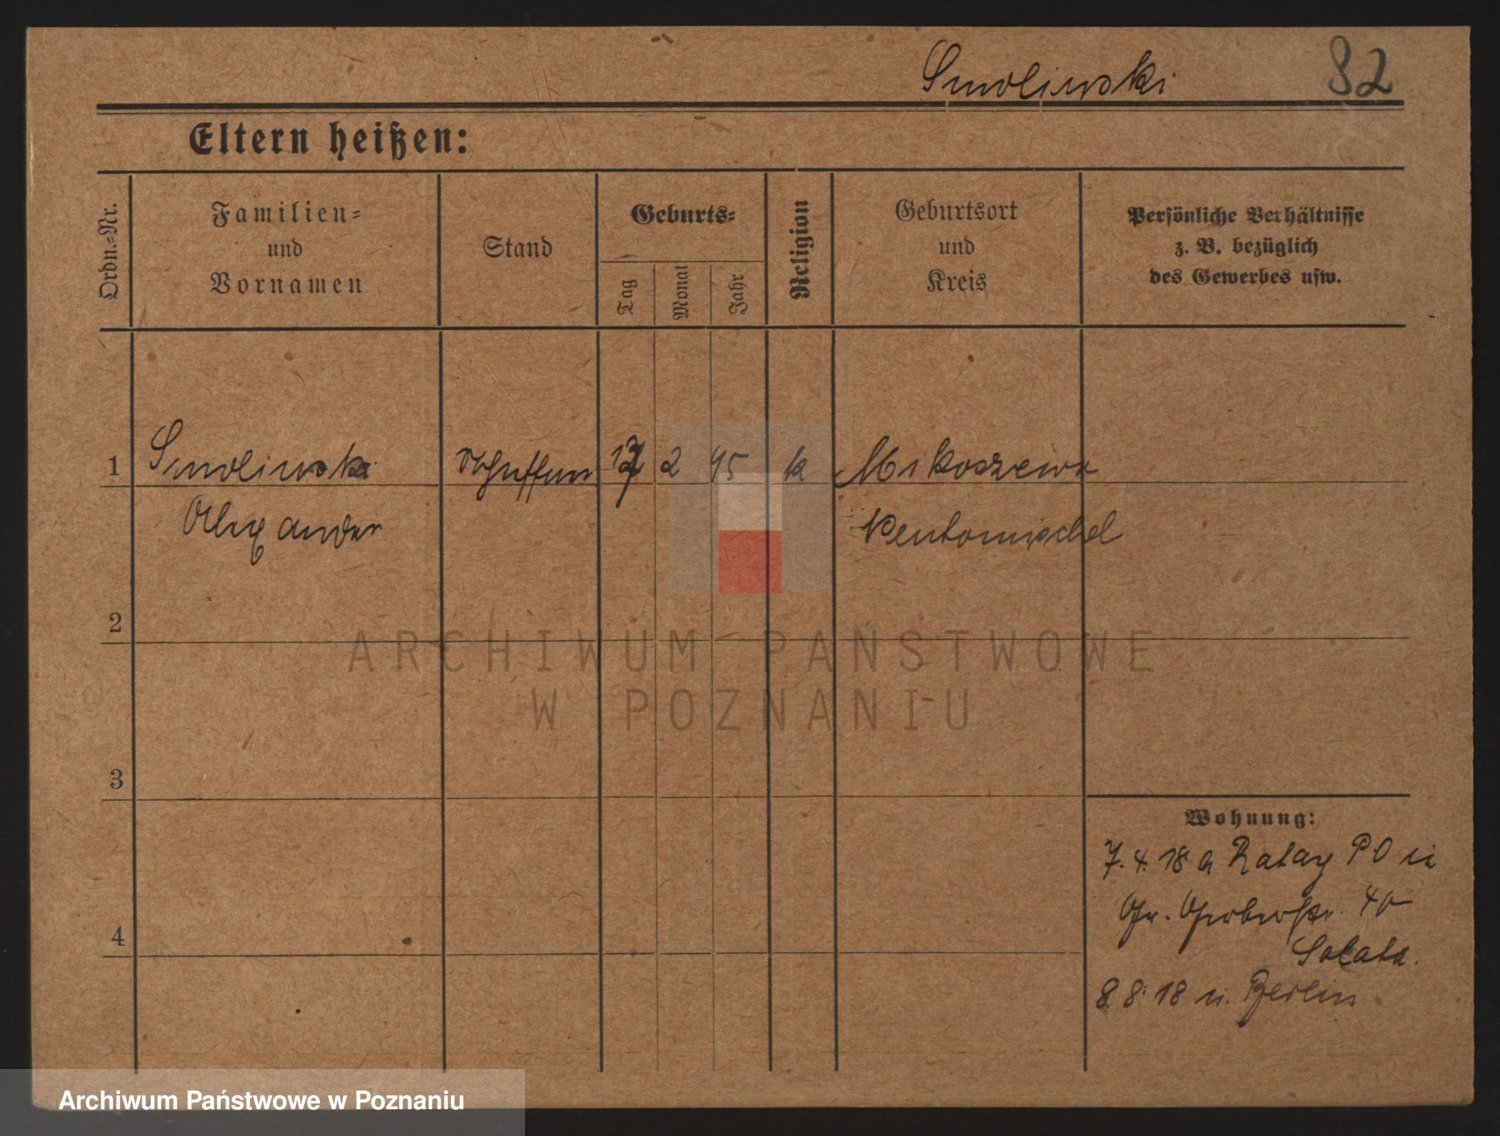 Smolinski 82
Eltern heißen:
Ordn.-Nr.
Familien-
und
Vornamen
Stand
Geburts-
Tag
Monat
Jahr
Religion
Geburtsort
und
Kreis
Persönliche Verhältnisse
z. B. bezüglich
des Gewerbes usw.
1 Smolinski 2 45 k Mikoszewo
Alexander Neutomischel
2
3
4
Wohnung:
7.4.18 a Rataj P O in
Gr. 40
Solata.
8.8.18 n. Berlin
ARCHIWUM PAŃSTWOWE
W POZNANIU
Archiwum Państwowe w Poznaniu